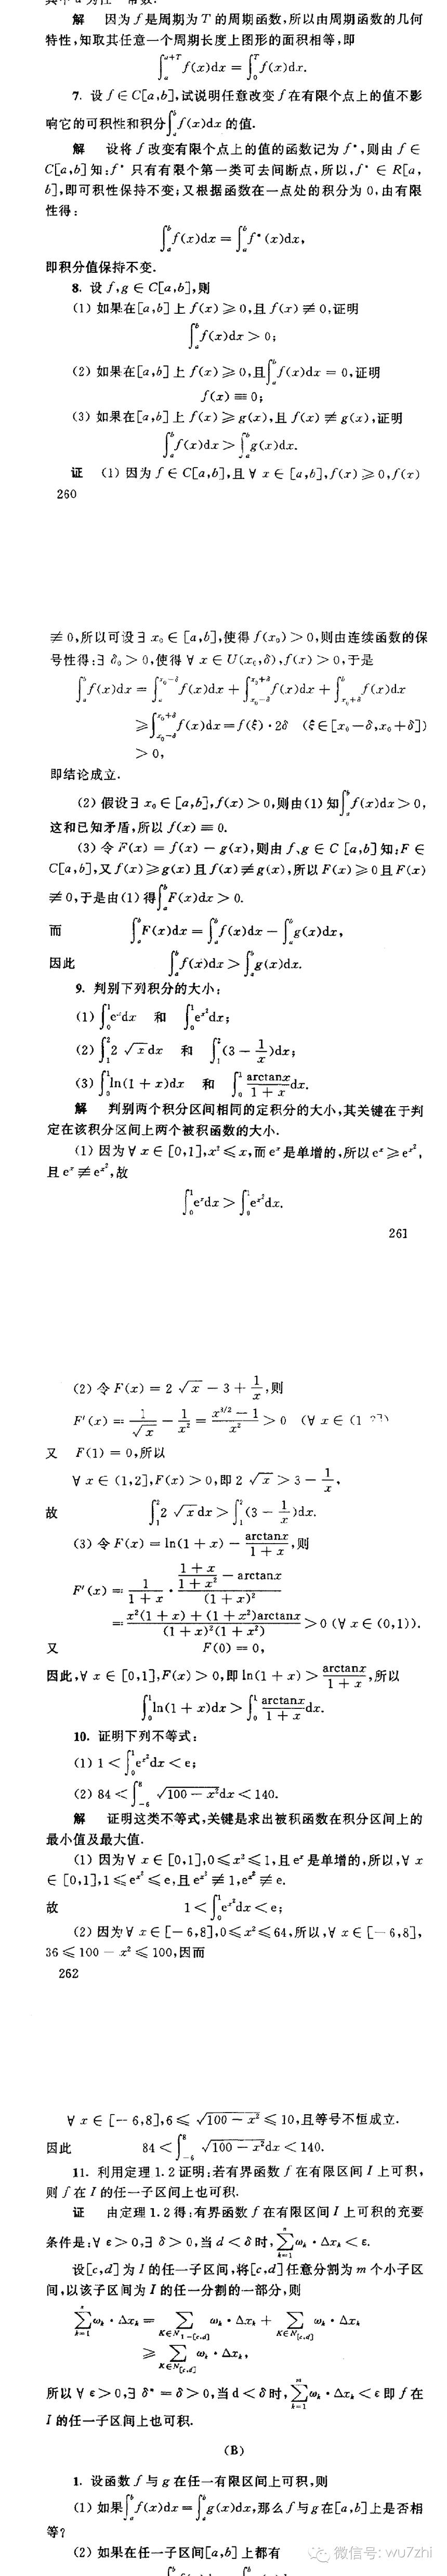 解 因为f是周期为T的周期函数,所以由周期函数的几何
特性,知取其任意一个周期长度上图形的面积相等,即
∫ₐ^{a+T} f(x)dx = ∫₀^T f(x)dx.
7. 设 f∈C[a,b],试说明任意改变 f 在有限个点上的值不影
响它的可积性和积分∫ₐ^b f(x)dx 的值.
解 设将 f 改变有限个点上的值的函数记为 f*,则由 f∈
C[a,b]知:f* 只有有限个第一类可去间断点,所以,f* ∈ R[a,
b],即可积性保持不变;又根据函数在一点处的积分为 0,由有限
性得:
∫ₐ^b f(x)dx = ∫ₐ^b f*(x)dx,
即积分值保持不变.
8. 设 f,g ∈ C[a,b],则
(1) 如果在[a,b]上 f(x)≥0,且 f(x)≢0,证明
∫ₐ^b f(x)dx > 0;
(2) 如果在[a,b]上 f(x)≥0,且∫ₐ^b f(x)dx = 0,证明
f(x)≡0;
(3) 如果在[a,b]上 f(x)≥g(x),且 f(x)≢g(x),证明
∫ₐ^b f(x)dx > ∫ₐ^b g(x)dx.
证 (1) 因为 f∈C[a,b],且∀ x∈[a,b],f(x)≥0,f(x)
260
≢0,所以可设∃ x₀∈[a,b],使得 f(x₀)>0,则由连续函数的保
号性得:∃ δ₀>0,使得∀ x∈U(x₀,δ),f(x)>0,于是
∫ₐ^b f(x)dx = ∫ₐ^{x₀-δ} f(x)dx + ∫_{x₀-δ}^{x₀+δ} f(x)dx + ∫_{x₀+δ}^b f(x)dx
≥∫_{x₀-δ}^{x₀+δ} f(x)dx=f(ξ)·2δ (ξ∈[x₀-δ,x₀+δ])
>0,
即结论成立.
(2) 假设∃ x₀∈[a,b],f(x)>0,则由(1)知∫ₐ^b f(x)dx>0,
这和已知矛盾,所以 f(x)≡0.
(3) 令 F(x) = f(x) − g(x),则由 f、g∈C [a,b]知:F∈
C[a,b],又 f(x)≥g(x)且 f(x)≢g(x),所以 F(x)≥0且 F(x)
≢0,于是由(1)得∫ₐ^b F(x)dx>0.
而 ∫ₐ^b F(x)dx = ∫ₐ^b f(x)dx − ∫ₐ^b g(x)dx,
因此 ∫ₐ^b f(x)dx > ∫ₐ^b g(x)dx.
9. 判别下列积分的大小:
(1) ∫₀^1 e^x dx 和 ∫₀^1 e^{x²}dx;
(2) ∫₁^2 2√x dx 和 ∫₁^2 (3 − 1/x)dx;
(3) ∫₀^1 ln(1 + x)dx 和 ∫₀^1 arctanx/(1+x) dx.
解 判别两个积分区间相同的定积分的大小,其关键在于判
定在该积分区间上两个被积函数的大小.
(1) 因为∀ x∈[0,1],x²≤x,而 e^x 是单增的,所以 e^x≥e^{x²},
且 e^x≢e^{x²},故
∫₀^1 e^x dx > ∫₀^1 e^{x²}dx.
261
(2) 令 F(x) = 2√x − 3 + 1/x,则
F′(x) = 1/√x − 1/x² = (x^{3/2} − 1)/x² > 0 (∀ x∈(1
又 F(1) = 0,所以
∀ x∈(1,2],F(x)>0,即 2√x > 3 − 1/x,
故 ∫₁^2 2√x dx > ∫₁^2 (3 − 1/x)dx.
(3) 令 F(x) = ln(1 + x) − arctanx/(1+x),则
F′(x) = 1/(1+x) · ((1+x)/(1+x²) − arctanx)/(1+x)²
= (x²(1+x) + (1+x²)arctanx)/((1+x)²(1+x²)) >0 (∀ x∈(0,1)).
又 F(0) = 0,
因此,∀ x∈[0,1],F(x)>0,即 ln(1 + x) > arctanx/(1+x),所以
∫₀^1 ln(1 + x)dx > ∫₀^1 arctanx/(1+x) dx.
10. 证明下列不等式:
(1) 1 < ∫₀^1 e^{x²}dx < e;
(2) 84 < ∫_{-6}^8 √(100 − x²)dx < 140.
解 证明这类不等式,关键是求出被积函数在积分区间上的
最小值及最大值.
(1) 因为∀ x∈[0,1],0≤x²≤1,且 e^x 是单增的,所以,∀ x
∈ [0,1],1≤e^{x²}≤e,且 e^{x²}≢1,e^{x²}≢e.
故 1 < ∫₀^1 e^{x²}dx < e;
(2) 因为∀ x∈[−6,8],0≤x²≤64,所以,∀ x∈[−6,8],
36≤100 − x²≤100,因而
262
∀ x∈[−6,8],6≤√(100 − x²)≤10,且等号不恒成立.
因此 84 < ∫_{-6}^8 √(100 − x²)dx < 140.
11. 利用定理 1.2 证明:若有界函数 f 在有限区间 I 上可积,
则 f 在 I 的任一子区间上也可积.
证 由定理 1.2 得:有界函数 f 在有限区间 I 上可积的充要
条件是:∀ ε>0,∃ δ>0,当 d<δ 时,∑_{k=1}^n ω_k·Δx_k<ε.
设[c,d]为 I 的任一子区间,将[c,d]任意分割为 m 个小子区
间,以该子区间为 I 的任一分割的一部分,则
∑_{k=1}^n ω_k·Δx_k = ∑_{K∈N_{I−[c,d]}} ω_k·Δx_k + ∑_{K∈N_{[c,d]}} ω_k·Δx_k
≥ ∑_{K∈N_{[c,d]}} ω_k·Δx_k,
所以∀ ε>0,∃ δ*=δ>0,当 d<δ 时,∑_{k=1}^m ω_k·Δx_k<ε 即 f 在
I 的任一子区间上也可积.
(B)
1. 设函数 f 与 g 在任一有限区间上可积,则
(1) 如果∫ₐ^b f(x)dx=∫ₐ^b g(x)dx,那么 f 与 g 在[a,b]上是否相
等?
(2) 如果在任一子区间[a,b]上都有
微信号: wu7zhi